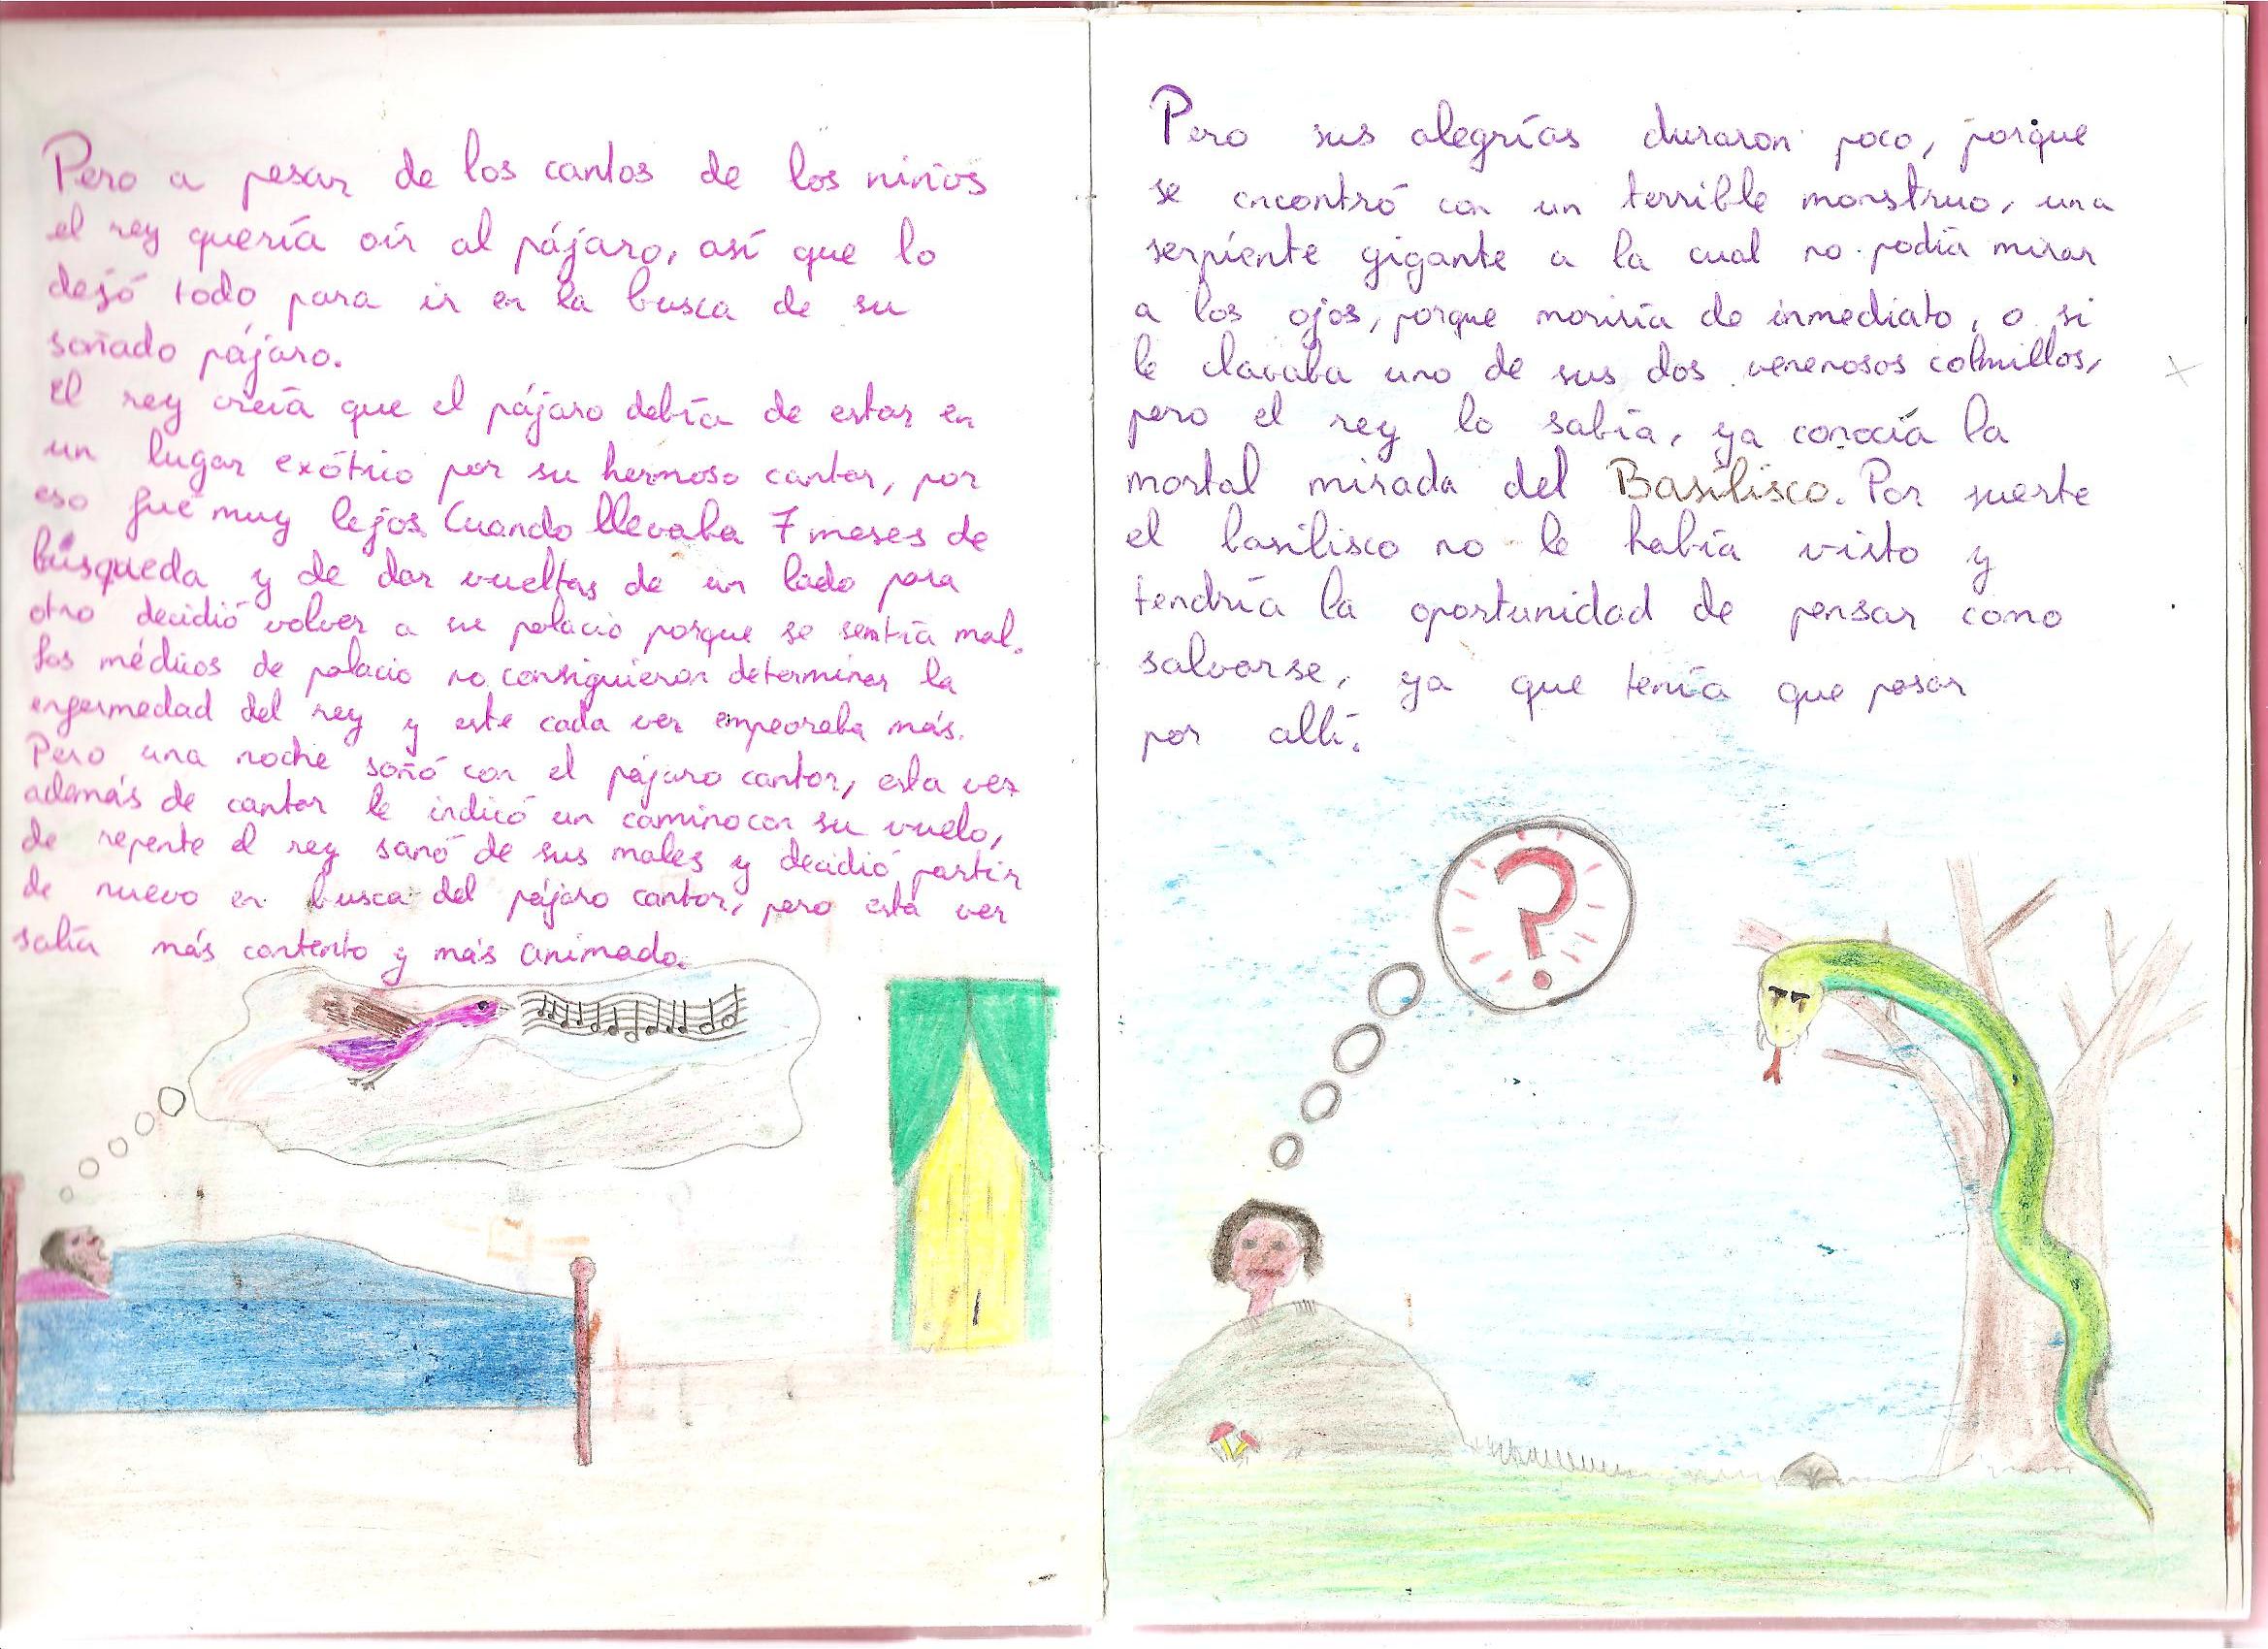 Pero a pesar de los cantos de los niños
el rey quería oír al pájaro, así que lo
dejó todo para ir en la busca de su
soñado pájaro.
El rey creía que el pájaro debía de estar en
un lugar exótico por su hermoso cantar, por
eso fué muy lejos Cuando llevaba 7 meses de
búsqueda y de dar vueltas de un lado para
otro decidió volver a su palacio porque se sentía mal.
Los médicos de palacio no consiguieron determinar la
enfermedad del rey y este cada vez empeoraba más.
Pero una noche soñó con el pájaro cantor, esta vez
además de cantar le indicó un camino con su vuelo,
de repente el rey sanó de sus males y decidió partir
de nuevo en busca del pájaro cantor, pero está vez
salía más contento y más animado.
Pero sus alegrías duraron poco, porque
se encontró con un terrible monstruo, una
serpiente gigante a la cual no podía mirar
a los ojos, porque moriría de inmediato, o si
le clavaba uno de sus dos venenosos colmillos,
pero el rey lo sabía, ya conocía la
mortal mirada del Basilisco. Por suerte
el basilisco no le había visto y
tendría la oportunidad de pensar como
salvarse, ya que tenía que pasar
por allí.
?